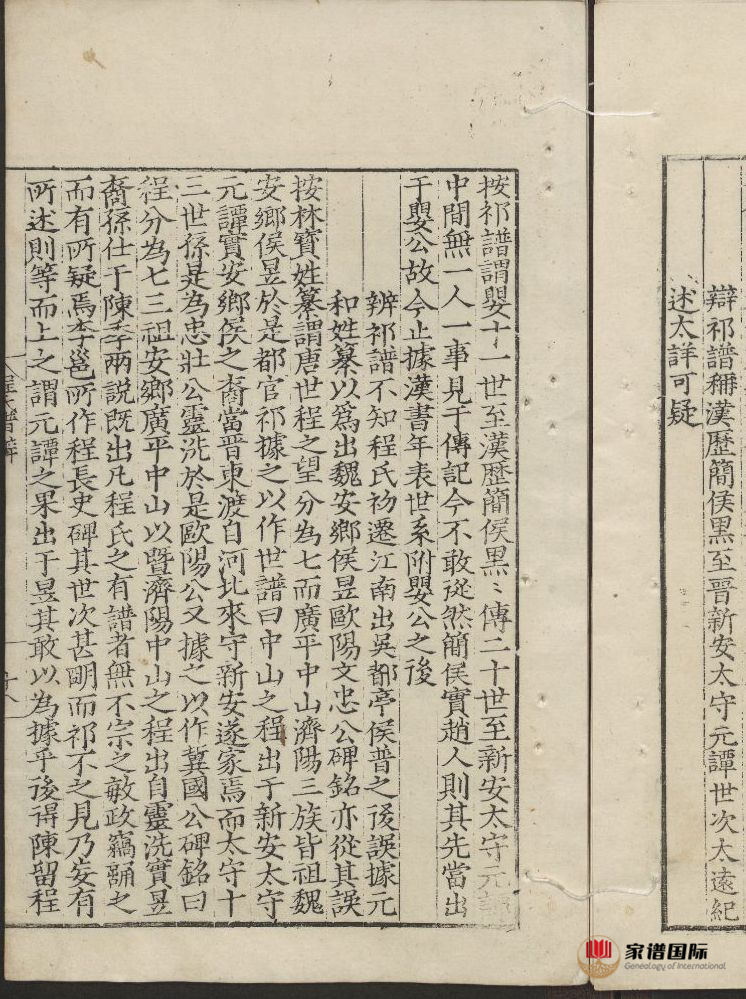 辯祁譜稱漢歷簡侯黑至晉新安太守元譚世次太遠紀
述太詳可疑
按祁譜謂嬰十一世至漢歷簡侯黑〻傳二十世至新安太守元譚
中間無一人一事見于傳記今不敢從然簡侯實趙人則其先當出
于嬰公故今止據漢書年表世系附嬰公之後
辨祁譜不知程氏初遷江南出吳都亭侯普之後誤據元
和姓纂以為出魏安鄉侯昱歐陽文忠公碑銘亦從其誤
按林寶姓纂謂唐世程之望分為七而廣平中山濟陽三族皆祖魏
安鄉侯昱於是都官祁據之以作世譜曰中山之程出于新安太守
元譚實安鄉侯之裔當晉東渡自河北來守新安遂家焉而太守十
三世孫是為忠壯公靈洗於是歐陽公又據之以作冀國公碑銘曰
程分為七三祖安鄉廣平中山以暨濟陽中山之程出自靈洗實昱
裔孫仕于陳季兩説既出凡程氏之有譜者無不宗之敏政竊誦之
而有所疑焉李邕所作程長史碑其世次甚明而祁不之見乃妄有
所述則等而上之謂元譚之果出于昱其敢以為據乎後得陳留程
程氏譜辨
家谱国际
Genealogy of International